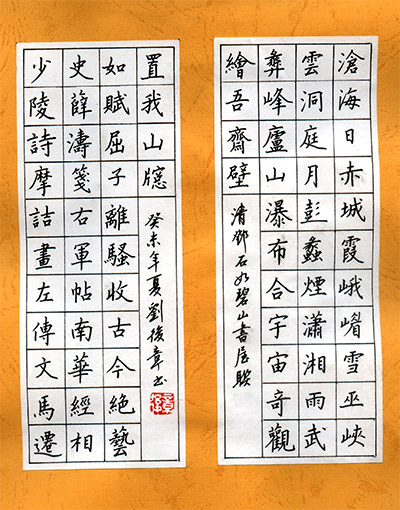 滄海日赤城霞峨嵋雪巫峽
雲洞庭月彭蠡煙瀟湘雨武
彝峰廬山瀑布合宇宙奇觀
繪吾齋壁
清鄧石如碧山書屋聯
少陵詩摩詰畫左傳文馬遷
史薛濤箋右軍帖南華經相
如賦屈子離騷收古今絕藝
置我山牕
癸未年夏劉後章书